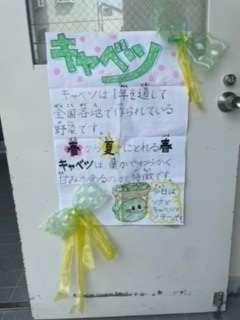 キャベツ
キャベツは1年を通して
全国各地で作られている
野菜です。
春から夏にとれる春
キャベツは、葉がやわらかく
甘みがあるのが特徴です。
今日は
ツナと
キャベツの
ソテーです